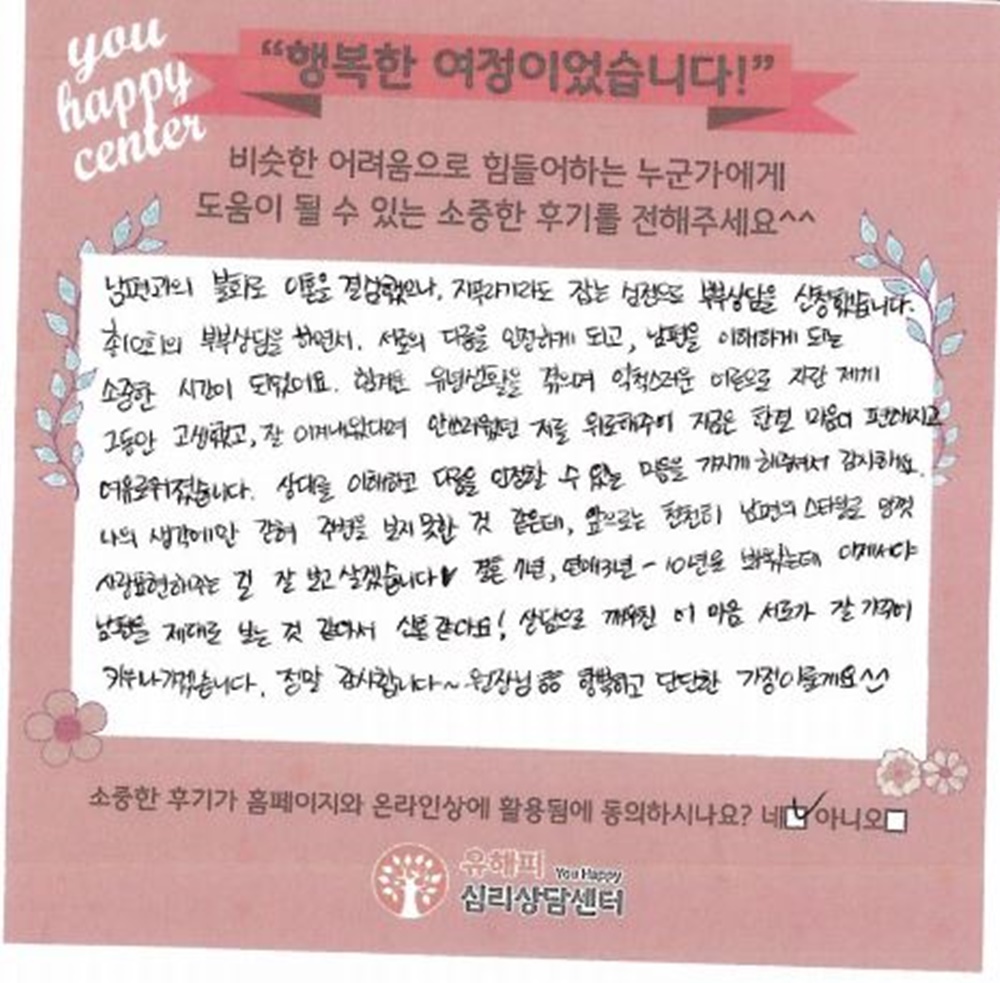 you
happy
center
“행복한 여정이었습니다!”
비슷한 어려움으로 힘들어하는 누군가에게
도움이 될 수 있는 소중한 후기를 전해주세요^^
남편과의 불화로 이혼을 결심했으나, 지푸라기라도 잡는 심정으로 부부상담을 신청했습니다.
총10회의 부부상담을 하면서, 서로의 다름을 인정하게 되고, 남편을 이해하게 되는
소중한 시간이 되었어요. 힘겨운 유년생활을 겪으며 억척스러운 어른으로 자란 제게
그동안 고생했고, 잘 이겨내왔다며 안쓰러웠던 저를 위로해주어 지금은 한결 마음이 편안해지고
여유로워졌습니다. 상대를 이해하고 다름을 인정할 수 있는 마음을 가지게 해주셔서 감사해요.
나의 생각에만 갇혀 주변을 보지 못한 것 같은데, 앞으로는 천천히 남편의 스타일로 맘껏
사랑표현해주는 걸 잘 보고 살겠습니다♥ 결혼 7년, 연애3년 - 10년을 봐왔는데 이제서야
남편을 제대로 보는 것 같아서 신혼 같아요! 상담으로 깨우친 이 마음 서로가 잘 가꾸어
키워나가겠습니다. 정말 감사합니다~ 원장님 행복하고 단단한 가정이룰게요^^
소중한 후기가 홈페이지와 온라인상에 활용됨에 동의하시나요? 네☑ 아니오□
유해피 You Happy
심리상담센터